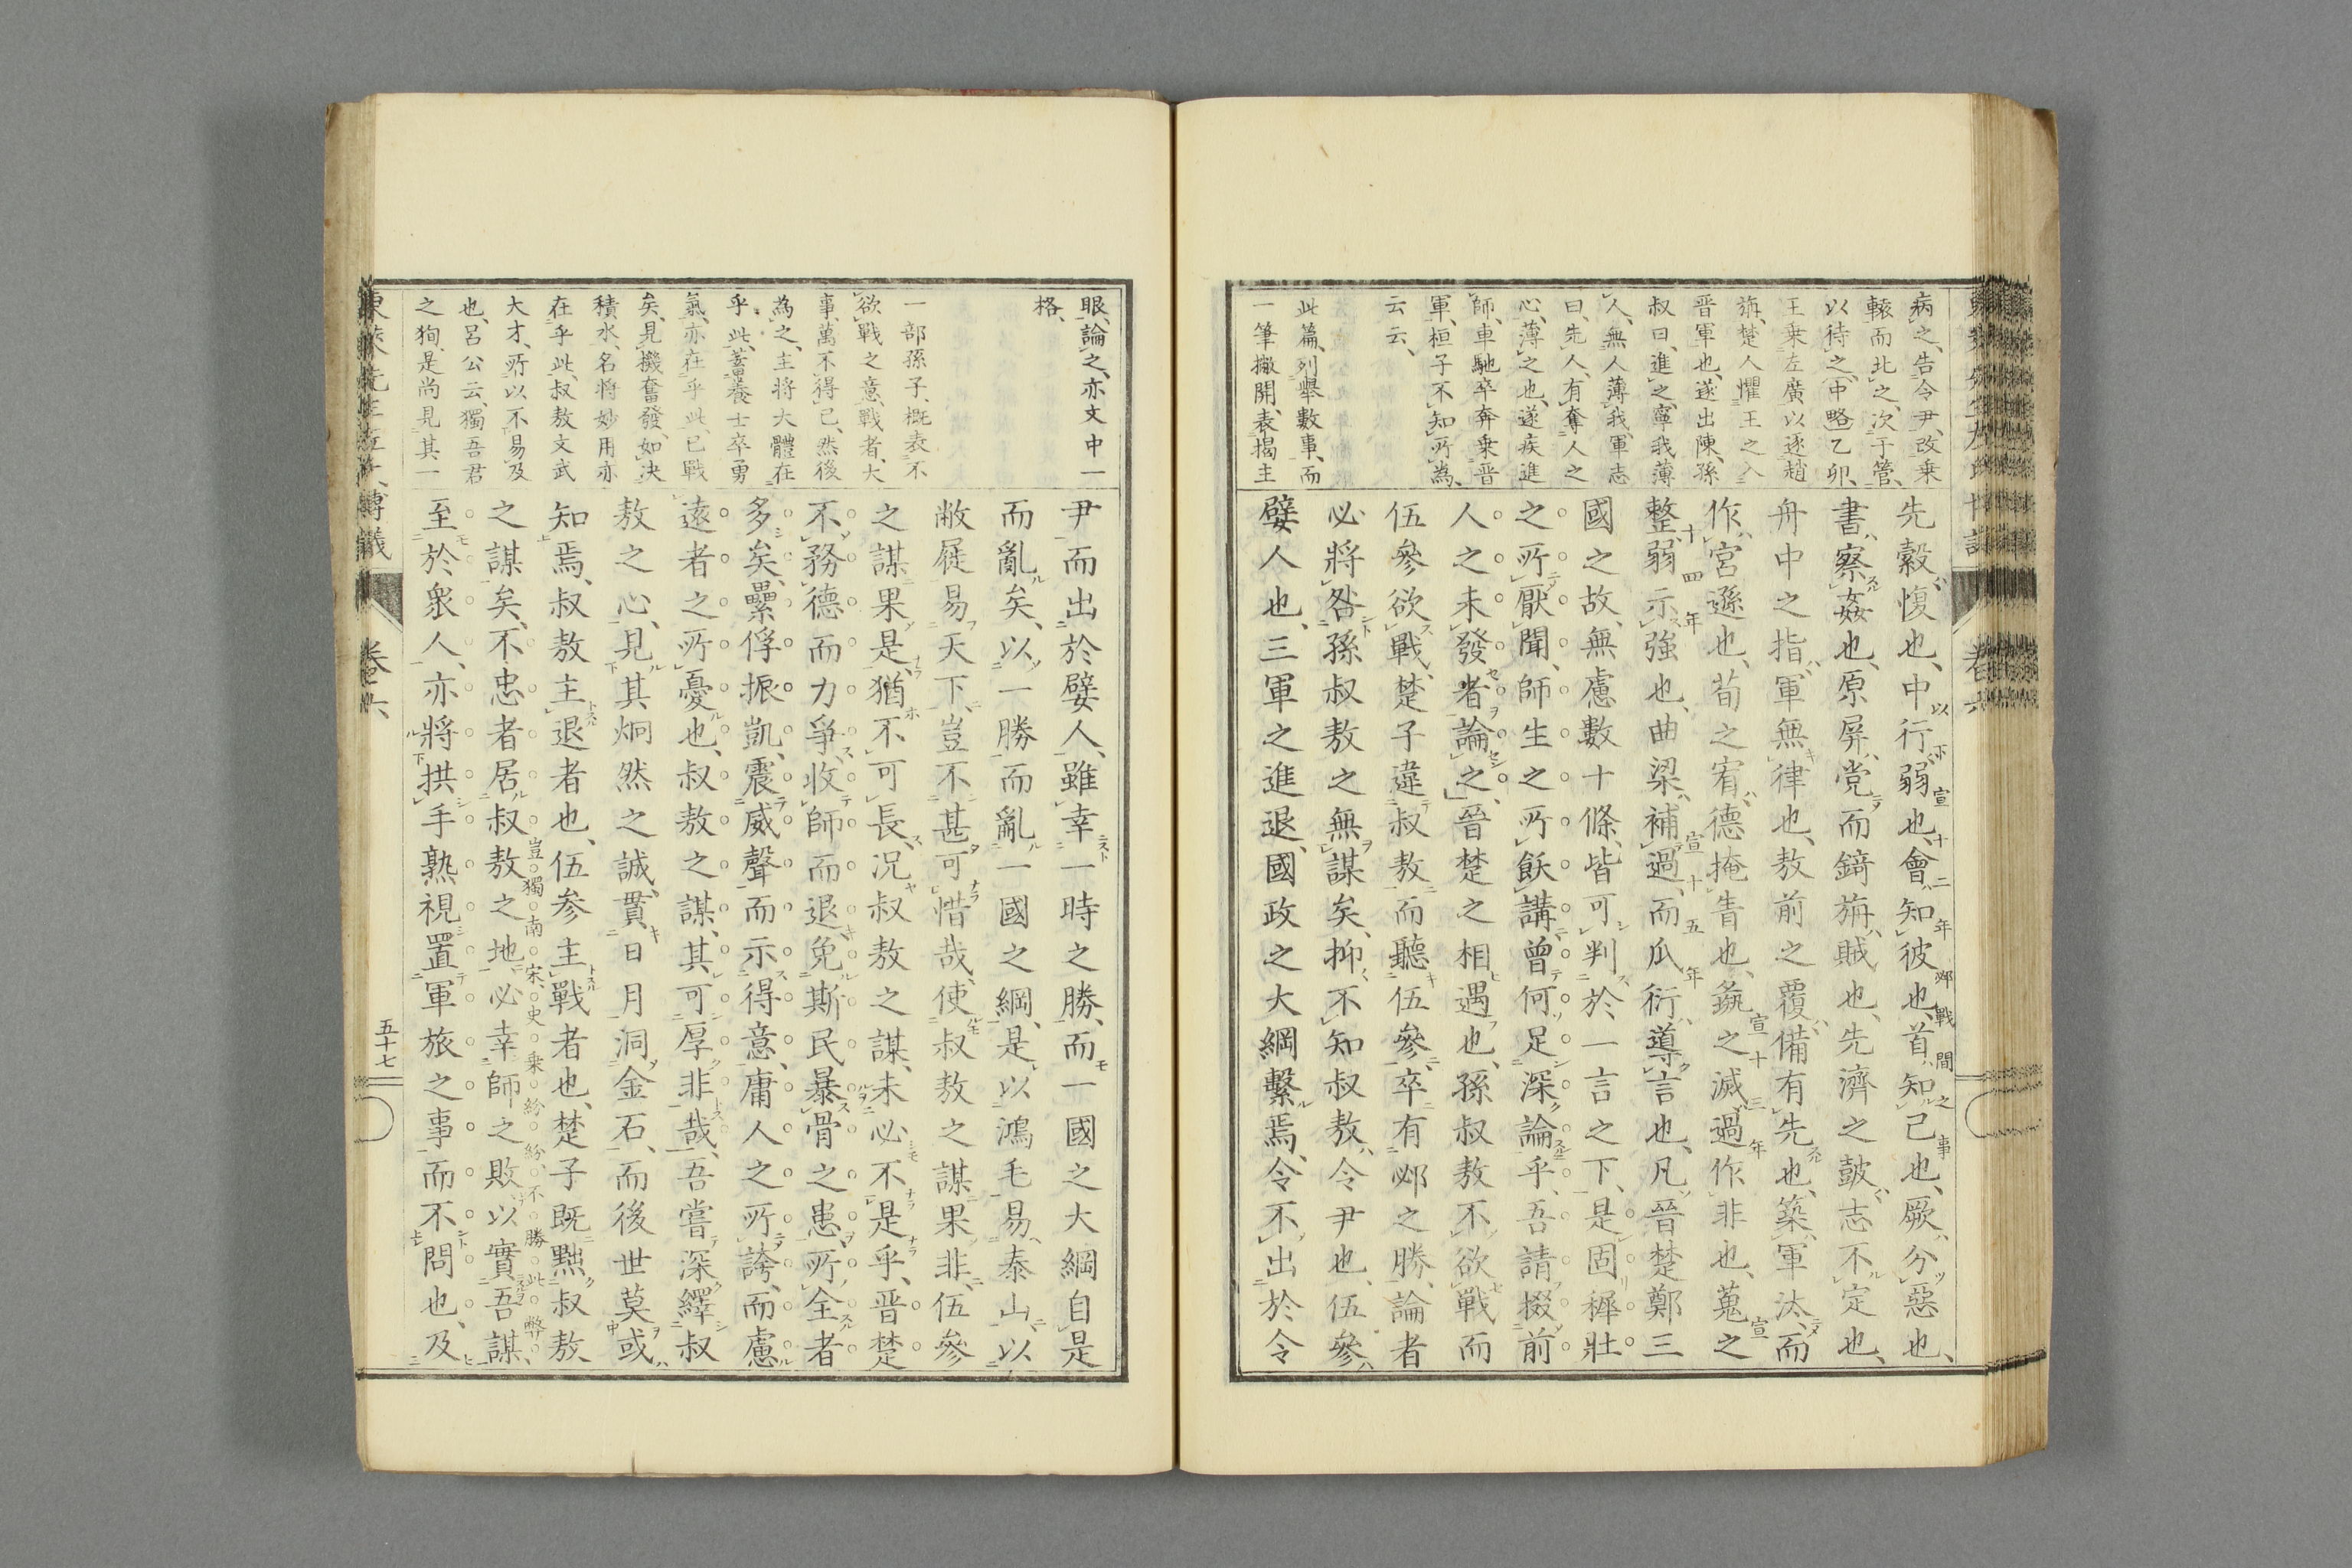 病之、告令尹、改乗
轅而北之、次于管、
以待之、中略乙卯、
王乗左廣以逐趙
旃、楚人懼王之入
晋軍也、遂出陳、孫
叔曰、進之、寧我薄
人、無人薄我、軍志
曰、先人、有奪人之
心、薄之也、遂疾進
師、車馳卒奔乗晋
軍、桓子不知所為、
云云、
此篇、列擧數事、而
一筆撇開、表揭主
先縠愎也、中行弱也、會知彼也、首知己也、厥分惡也、
書察姦也、原屏党而錡旃賊也、先濟之鼓、志不定也、
舟中之指、軍無律也、敖前之覆、備有先也、築軍汰、而
作宮遜也、荀之宥、德掩眚也、彘之滅、過作非也、蒐之
整、弱示強也、曲梁補過、而瓜衍導言也、凡晉楚鄭三
國之故、無慮數十條、皆可判於一言之下、是固穉壯
之所厭聞、師生之所飫講、曾何足深論乎、吾請掇前
人之未發者論之、晉楚之相遇也、孫叔敖不欲戰而
伍參欲戰、楚子違叔敖而聽伍參、卒有邲之勝、論者
必將咎孫叔敖之無謀矣、抑不知叔敖、令尹也、伍參、
嬖人也、三軍之進退、國政之大綱繫焉、令不出於令
以下宣十二年邲戰間之事
宣十三年
宣十四年
宣十五年
眼、論之、亦文中一
格、
一部孫子、概表不
欲戰之意、戰者、大
事、萬不得已、然後
為之、主將大體在
乎此、蓄養士卒勇
氣、亦在乎此、已戰
矣、見機奮發、如決
積水、名將妙用亦
在乎此、叔敖文武
大才、所以不易及
也、呂公云、獨吾君
之狥、是尚見其一
尹而出於嬖人、雖幸一時之勝、而一國之大綱自是
而亂矣、以一勝而亂一國之綱、是以鴻毛易泰山、以
敝屣易天下、豈不甚可惜哉、使叔敖之謀果非、伍參
之謀果是、猶不可長、况叔敖之謀、未必不是乎、晋楚
不務德而力爭、收師而退、免斯民暴骨之患、所全者
多矣、壘俘振凱、震威聲而示得意、庸人之所誇、而慮
遠者之所憂也、叔敖之謀、其可厚非哉、吾嘗深繹叔
敖之心、見其炯然之誠、貫日月洞金石、而後世莫或
知焉、叔敖主退者也、伍参主戰者也、楚子既黜叔敖、
之謀矣、不忠者居叔敖之地、必幸師之敗、以實吾謀、
豈獨南宋、史乗紛紛、不勝此弊
至於衆人、亦將拱手熟視置軍旅之事而不問也、及
東萊先生左氏博議
卷六
五十七